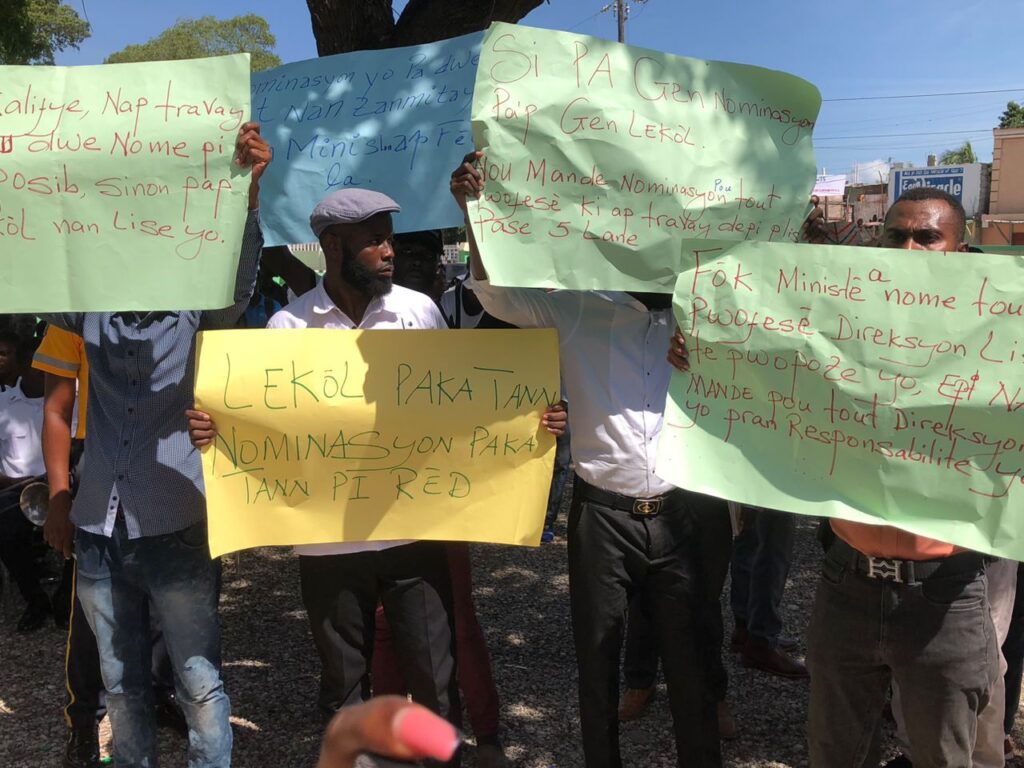 kalifye, Nap travay
dwe Nome pi
posib, sinon pap
kòl nan lise yo.
ominasyon yo Pa dwe
t Nan Zanmitay
Minis la ap Fè
la.
Si PA Gen Nominasyon
Pap Gen LeKòl.
Nou Mande Nominasyon Pou tout
Pwofesè ki ap travay depi plis
Pase 5 Lane
LEKÒL PAKA TANN
NOMINASYON PAKA
TANN PI RÈD
FÒK Ministè a nome tou
Pwofesè Direksyon Lis
te pwopoze yo, EPI N
MANDE pou tout Direksyon
yo pran Responsabilite yo